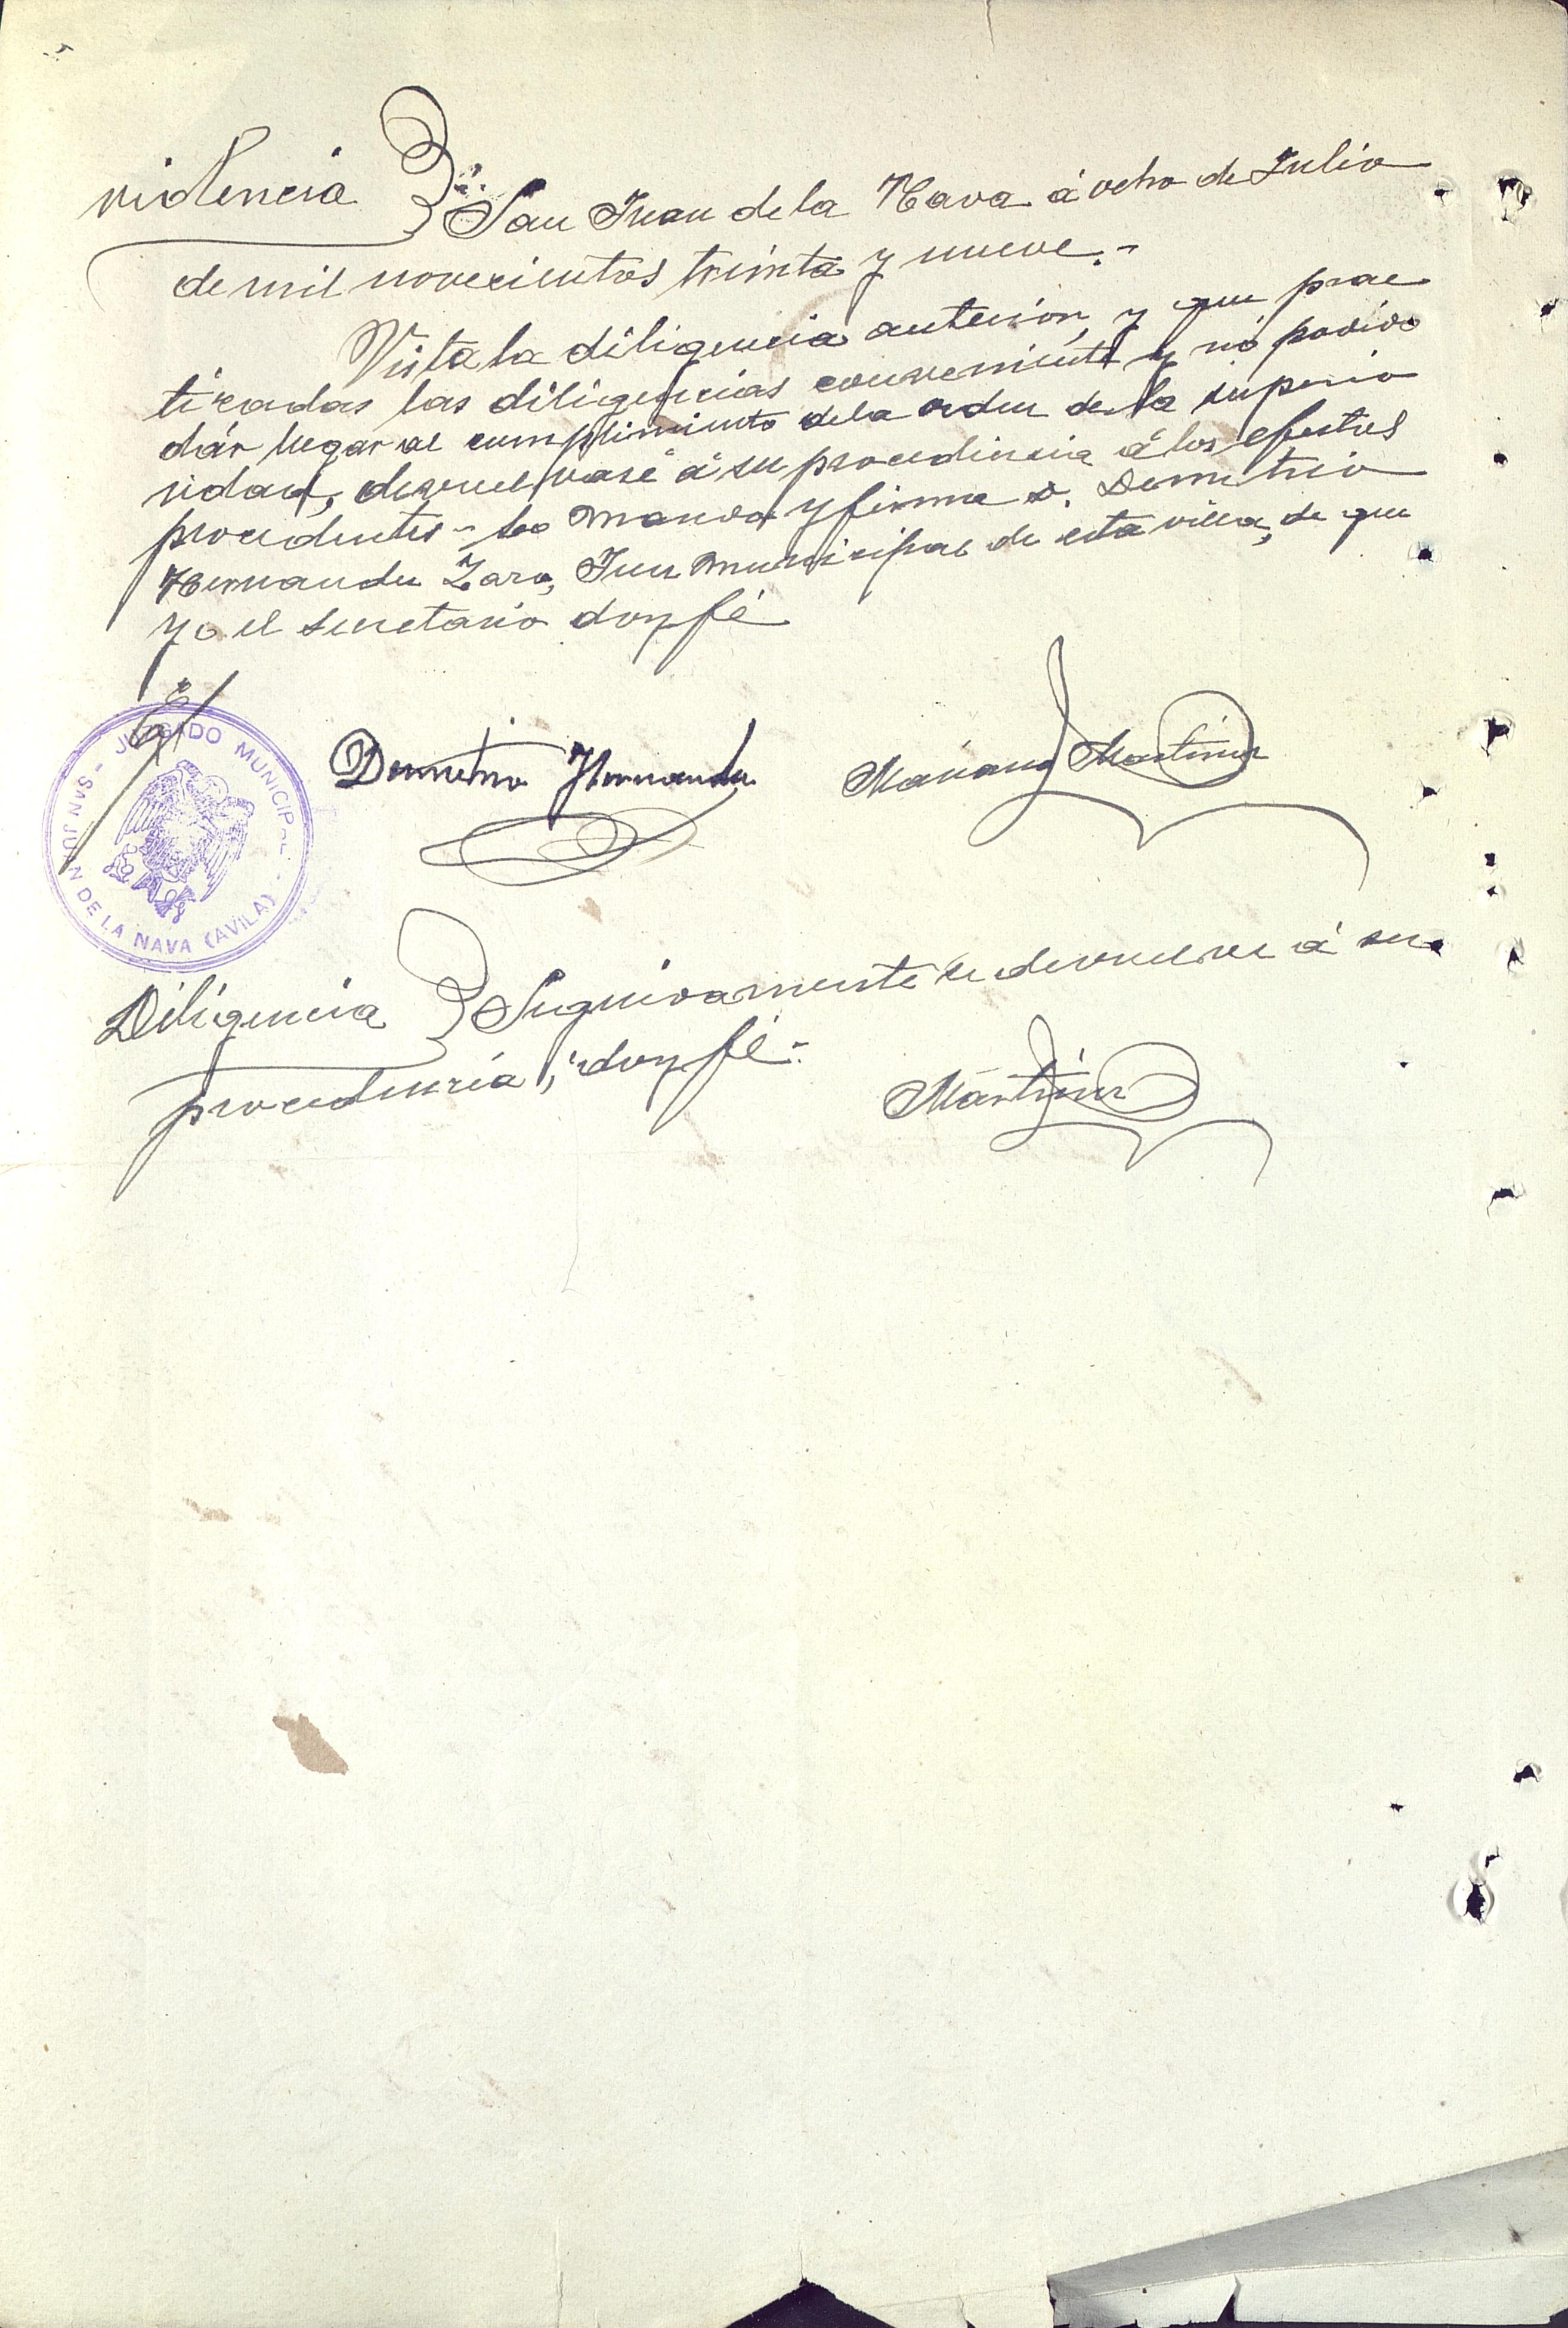 videncia San Juan de la Nava á ocho de Julio
de mil novecientos treinta y nueve.-
Vista la diligencia anterior, y que prac
ticadas las diligencias conveniente y nó podido
dár lugar al cumplimiento de la orden de la superio
ridad, devuelvase á su procedencia á los efectos
procedentes - Lo mando y firma D. Demetrio
Hernandez Zazo, Juez Municipal de esta villa, de que
yo el secretario doy fé
JUZGADO MUNICIPAL - SAN JUAN DE LA NAVA (AVILA) -
Demetrio Hernandez Mariano Martinez
Diligencia Seguidamente se devuelve á su
procedencia, doy fé.-
Martinez